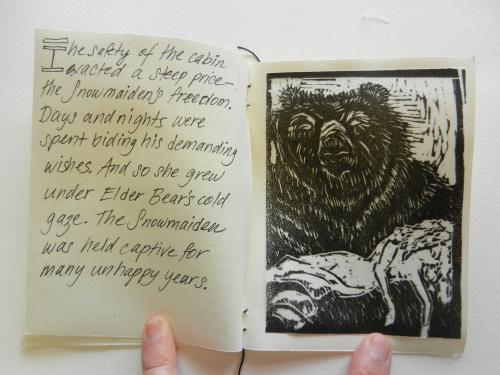 The safety of the cabin
exacted a steep price—
the Snowmaiden's freedom.
Days and nights were
spent biding his demanding
wishes. And so she grew
under Elder Bear's cold
gaze. The Snowmaiden
was held captive for
many unhappy years.